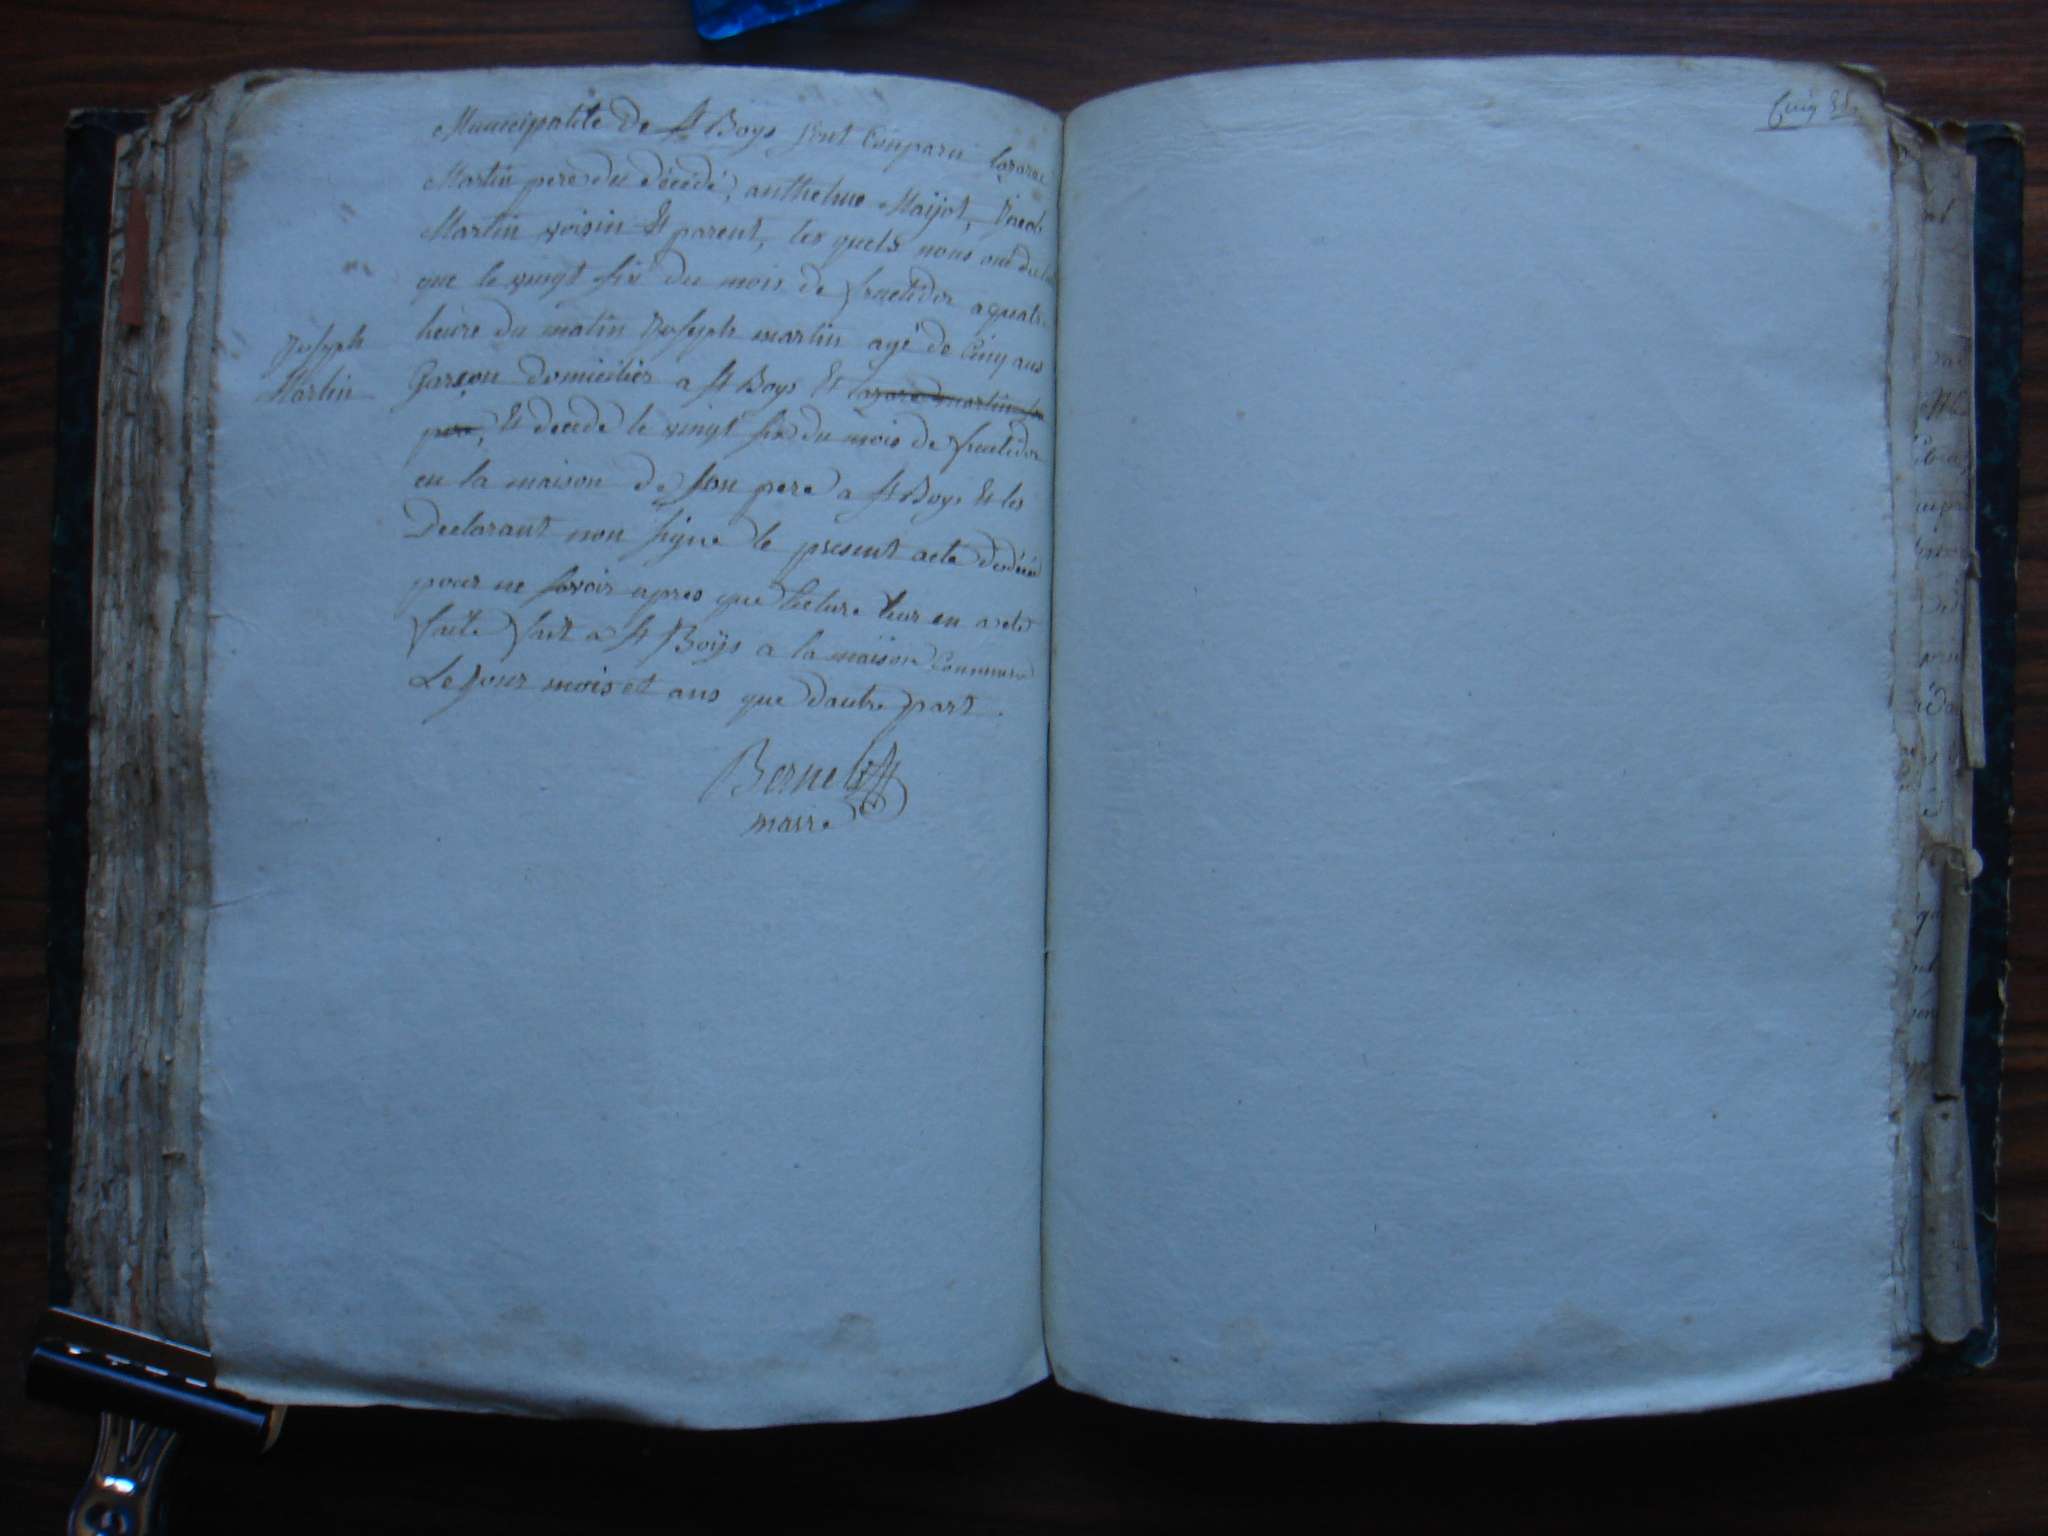 Municipalité de St Boys sont Comparu Lazare
Martin pere du décédé, anthelme Maijot, Jacob
Martin voisin Et parent, les quels nous ont
que le vingt six du mois de fructidor a quatre
heure du matin Joseph martin agé de Cinq ans
Joseph
Martin
Garçon domicilier a St Boys Et Lazare martin
pere, Et décédé le vingt six du mois de fructidor
en la maison de son pere a St Boys Et les
Declarant non signe le present acte
pour ne savoir apres que lecture leur en a eté
faite fait a St Boÿs a la maison Commune
Le Jour mois et ans que dautre part.
Bernet
maire
Cinq